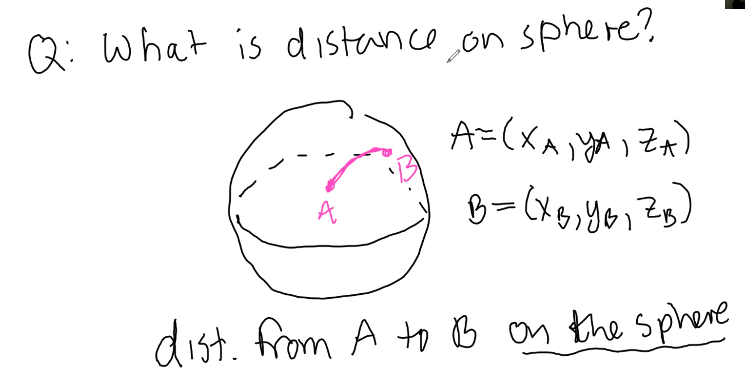 Q: What is distance on sphere?
A=(x_A, y_A, z_A)
B
A
B=(x_B, y_B, z_B)
dist. from A to B on the sphere